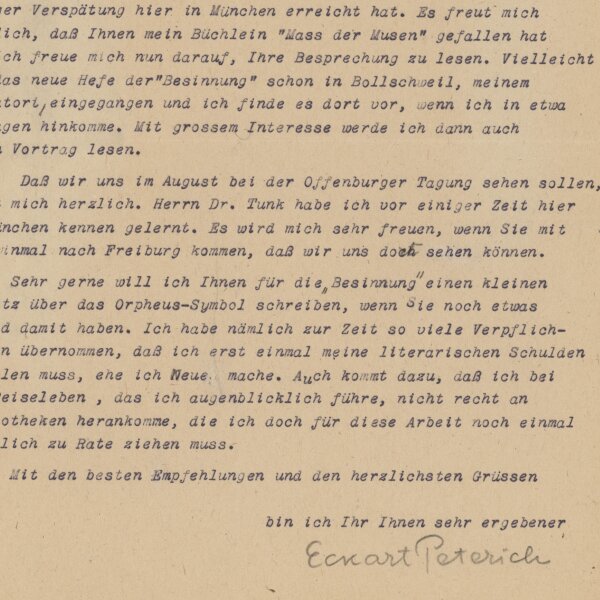 ger Verspätung hier in München erreicht hat. Es freut mich
lich, daß Ihnen mein Büchlein "Mass der Musen" gefallen hat
ich freue mich nun darauf, Ihre Besprechung zu lesen. Vielleicht
das neue Hefe der"Besinnung" schon in Bollschweil, meinem
atori, eingegangen und ich finde es dort vor, wenn ich in etwa
agen hinkomme. Mit grossem Interesse werde ich dann auch
n Vortrag lesen.
Daß wir uns im August bei der Offenburger Tagung sehen sollen,
t mich herzlich. Herrn Dr. Tunk habe ich vor einiger Zeit hier
ünchen kennen gelernt. Es wird mich sehr freuen, wenn Sie mit
einmal nach Freiburg kommen, daß wir uns doch sehen können.
Sehr gerne will ich Ihnen für die „Besinnung" einen kleinen
tz über das Orpheus-Symbol schreiben, wenn Sie noch etwas
d damit haben. Ich habe nämlich zur Zeit so viele Verpflich-
n übernommen, daß ich erst einmal meine literarischen Schulden
len muss, ehe ich Neue mache. Auch kommt dazu, daß ich bei
eiseleben , das ich augenblicklich führe, nicht recht an
otheken herankomme, die ich doch für diese Arbeit noch einmal
lich zu Rate ziehen muss.
Mit den besten Empfehlungen und den herzlichsten Grüssen
bin ich Ihr Ihnen sehr ergebener
Eckart Peterich